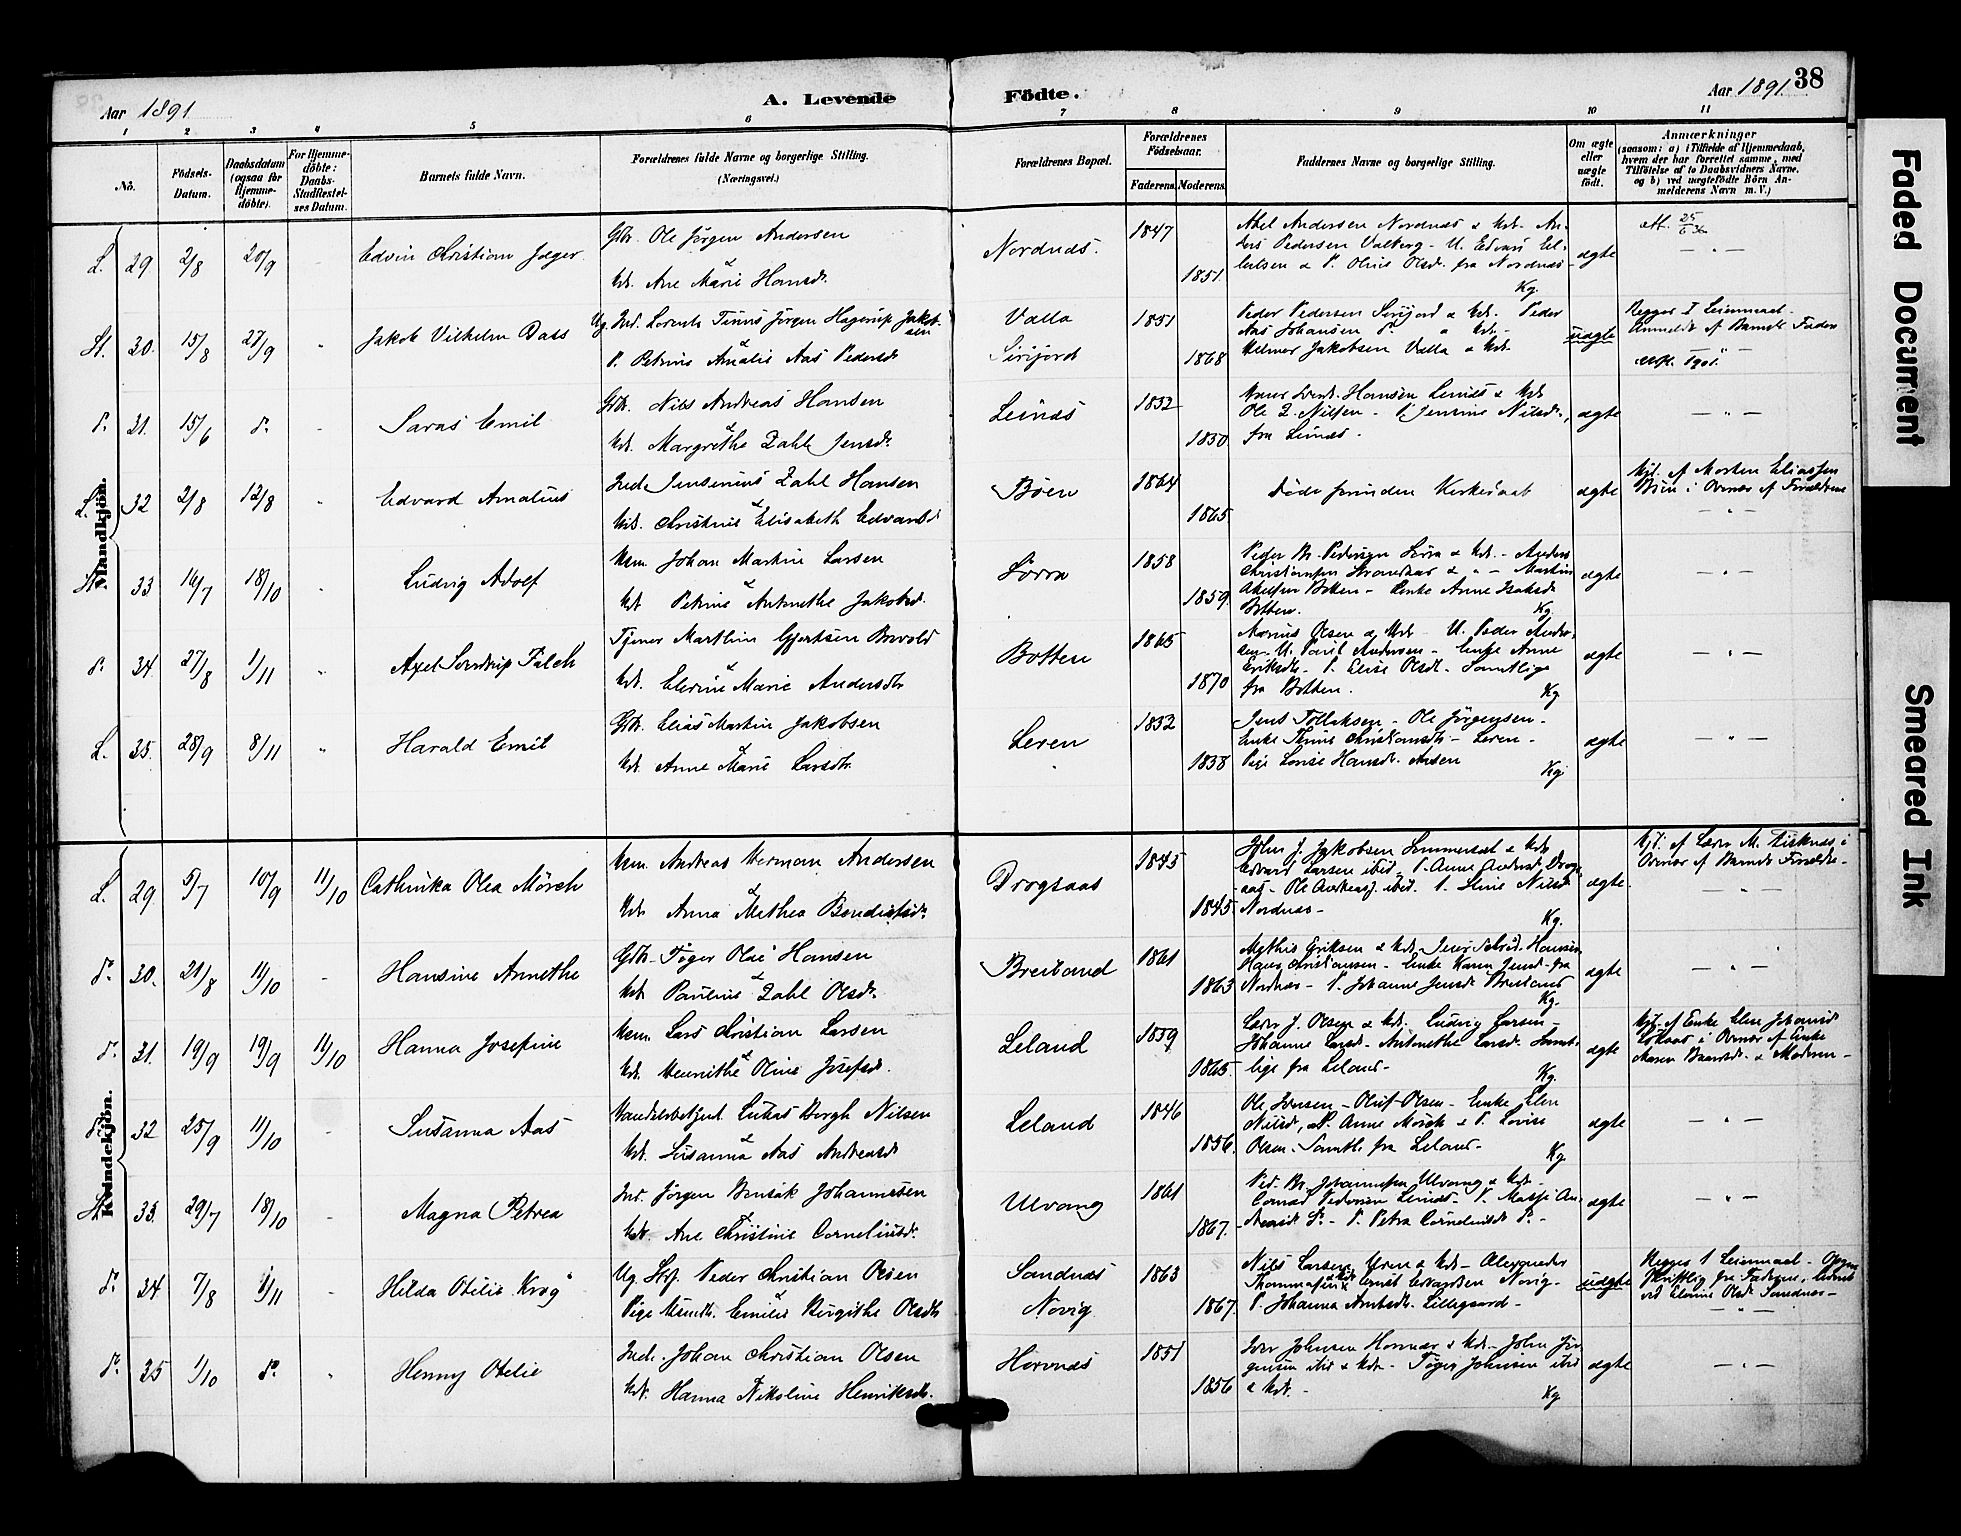 38
Aar 1891
A. Levende Födte.
Aar 1891.
1 2 3 4 5 6 7 8 9 10 11
No.
Födsels-Datum.
Daabsdatum (ogsaa for Hjemme-döbte).
For Hjemme-döbte: Daabs-Stadfæstel-ses Datum.
Barnets fulde Navn.
Forældrenes fulde Navne og borgerlige Stilling. (Næringsvei.)
Forældrenes Bopæl.
Forældrenes Födselsaar.
Faderens. Moderens.
Faddernes Navne og borgerlige Stilling.
Om ægte eller uægte födt.
Anmærkninger (saasom: a) i Tilfælde af Hjemmedaab, hvem der har forrettet samme, med Tilföielse af to Daabsvidners Navne, og b) ved uægtefödte Börn An-melderens Navn m. V.)
Mandkjön.
L. 29 2/8 20/9 Edvin Christian Jæger
Gbr. Ole Jörgen Andersen
&
Kst. Ane Marie Hansdr.
Nordnæs. 1847 1851.
Abel Andersen Nordnæs & Kst. An-
ders Pedersen Valberg - U. Edvard
& P. Oline Olsd. fra Nordnæs
Kg.
ægte
St. 30. 15/8 27/9 Jakob Vilhelm Dass
Ug. Ind. Lorents Tinus Jörgen Hagerup Jakob-
sen
&
P. Petrine Amalie Aas Pedersd.
Valla
Sirijord
1851 1868
Peder Pedersen Sirijord & Kst. Peder
Aas Johansen do & Kst.
Hilmar Jakobsen Valla & Kst.
uægte
Begges I Leiermaal.
Anmeldt af Barnets Fader
do. 31. 15/6 do. Saras Emil
Gbr. Nils Andreas Hansen
&
Kst. Margrethe Zahl Jensdr.
Leinæs 1832 1830
Hansen Leinæs & Kst.
Ole Z. Nilsen - P. Jensine Nilsdr.,
fra Leinæs.
ægte
L. 32 2/8 12/8 Edvard Amalius
Inds. Jensenius Zahl Hansen
&
Kst. Christine Elisabeth Edvardsd.
Böen 1864 1865
Döde forinden Kirkedaab
ægte
Hjd. af Morten Eliassen
Böen i Overvær af Forældrene
St. 33 16/7 18/10 Ludvig Adolf
Husm. Johan Martin Larsen
&
Kst. Petrine Antonethe Jakobsd.
Sörra 1858 1859.
Peder Br. Pedersen Sörra & Kst. - Anders
Christiansen & " - Martin
Botten - Enke Anne Isaksd.
Botten.
Kg.
ægte
do. 34. 27/8 1/11 Axel Sverdrup Falch
Tjener Marthin Gjertsen Brevold
&
Kst. Elerine Marie Andersdtr
Botten 1865 1870
Marius Olsen & Kst - U. Peder Ander-
sen - U. Paul Andersen - Enke Anne
Eriksdtr - P. Elise Olsdt. - Samtlige
fra Botten.
Kg
ægte
L. 35. 28/9 8/11 Harald Emil
Gbr. Elias Martin Jakobsen
&
Kst. Anne Marie Larsdtr.
Leren 1832 1838
Jens Tollaksen - Ole Jörgensen -
Enke Christiansdtr - Leren -
Pige Lovise Hansdt. Ansen
Kg.
ægte
Kvindekjön.
L. 29. 5/7 10/9 11/10 Cathinka Olea Mörch
Husm. Andreas Herman Andersen
&
Kst. Anna Methea Bendiksdr.
Drogsaas 1845 1845.
John J. Jakobsen Sommerset & Kst.
Edvard Larsen ibid - P. Anne Andreasd. Drogs-
aas - Ole Andreas. ibid. P. Nilsd.
Nordnæs -
Kg.
ægte.
Hjd. af Lærer M. Fisknæs i
Overvær af Barnets Forældre -
do. 30. 21/8 11/10 Hansine Annethe
Gbr. Töger Olai Hansen
&
Kst. Pauline Zahl Olsdr.
Breiland 1861 1863
Mathis Eriksen & Kst. Hansen
Hans Christiansen - Enke Karen Jensd. fra
Nordnæs - P. Johanne Jensd. Breiland
Kg.
ægte
do. 31. 19/9 19/9 11/10 Hanna Josefine
Husm. Lars Christian Larsen
&
Kst. Henrikthe Oline Josefsd.
Leland 1859 1865.
Lars J. Olsen & Kst. Ludvig Larsen -
Johanne Larsd. Antonethe Larsd. Samt-
lige fra Leland -
Kg.
ægte
Hjd. af Enke Elen Johansd.
i Overvær af Enke
Maren & Moderen -
do. 32 25/9 11/10 Susanna Aas
Handelsbetjent Lukas Borgh Nilsen
&
Kst. Susanna Aas Andreasd.
Leland 1846 1856.
Ole Iversen - Oluf Olsen - Enke Elen
Nilsd., P. Anne Mörch & P. Lovise
Olsen. Samtl. fra Leland -
Kg
ægte
St. 33. 29/7 18/10 Magna Petrea
Ind. Jörgen Benzak Johannessen
&
Kst. Ane Christine Corneliusd.
Ulvang 1861 1867.
Ped. Br. Johannessen Ulvang & Kst -
Conrad Pedersen Leinæs - P. An-
dreasd. do - P. Petra Corneliusd. do -
ægte
do. 34 7/8 1/11 Hilda Otilie Krog
Ug. Peder Christian Olsen
&
Pige Emilie Birgithe Olsdtr
Sandnæs
Novig
1863 1867.
Nils Larsen & Kst - Alexander
Thommassen & Kst Ernst Edvardsen Novig -
P. Johanna Arntsdt. Lillegaard -
uægte
Begges 1 Leiermaal - Opgivet
skriftlig fra Faderen,
ved Olsd. Sandnæs -
do. 35 1/10 do. Henny Otilie
Inds. Johan Christian Olsen
&
Kst. Hanna Nikoline Henriksdtr.
Horvnæs 1851 1856
Iver Johnsen Horvnæs & Kst - John Jör-
gensen ibid & Kst - Töger Johnsen ibid
& Kst. -
Kg
ægte
Faded Document
Smeared Ink